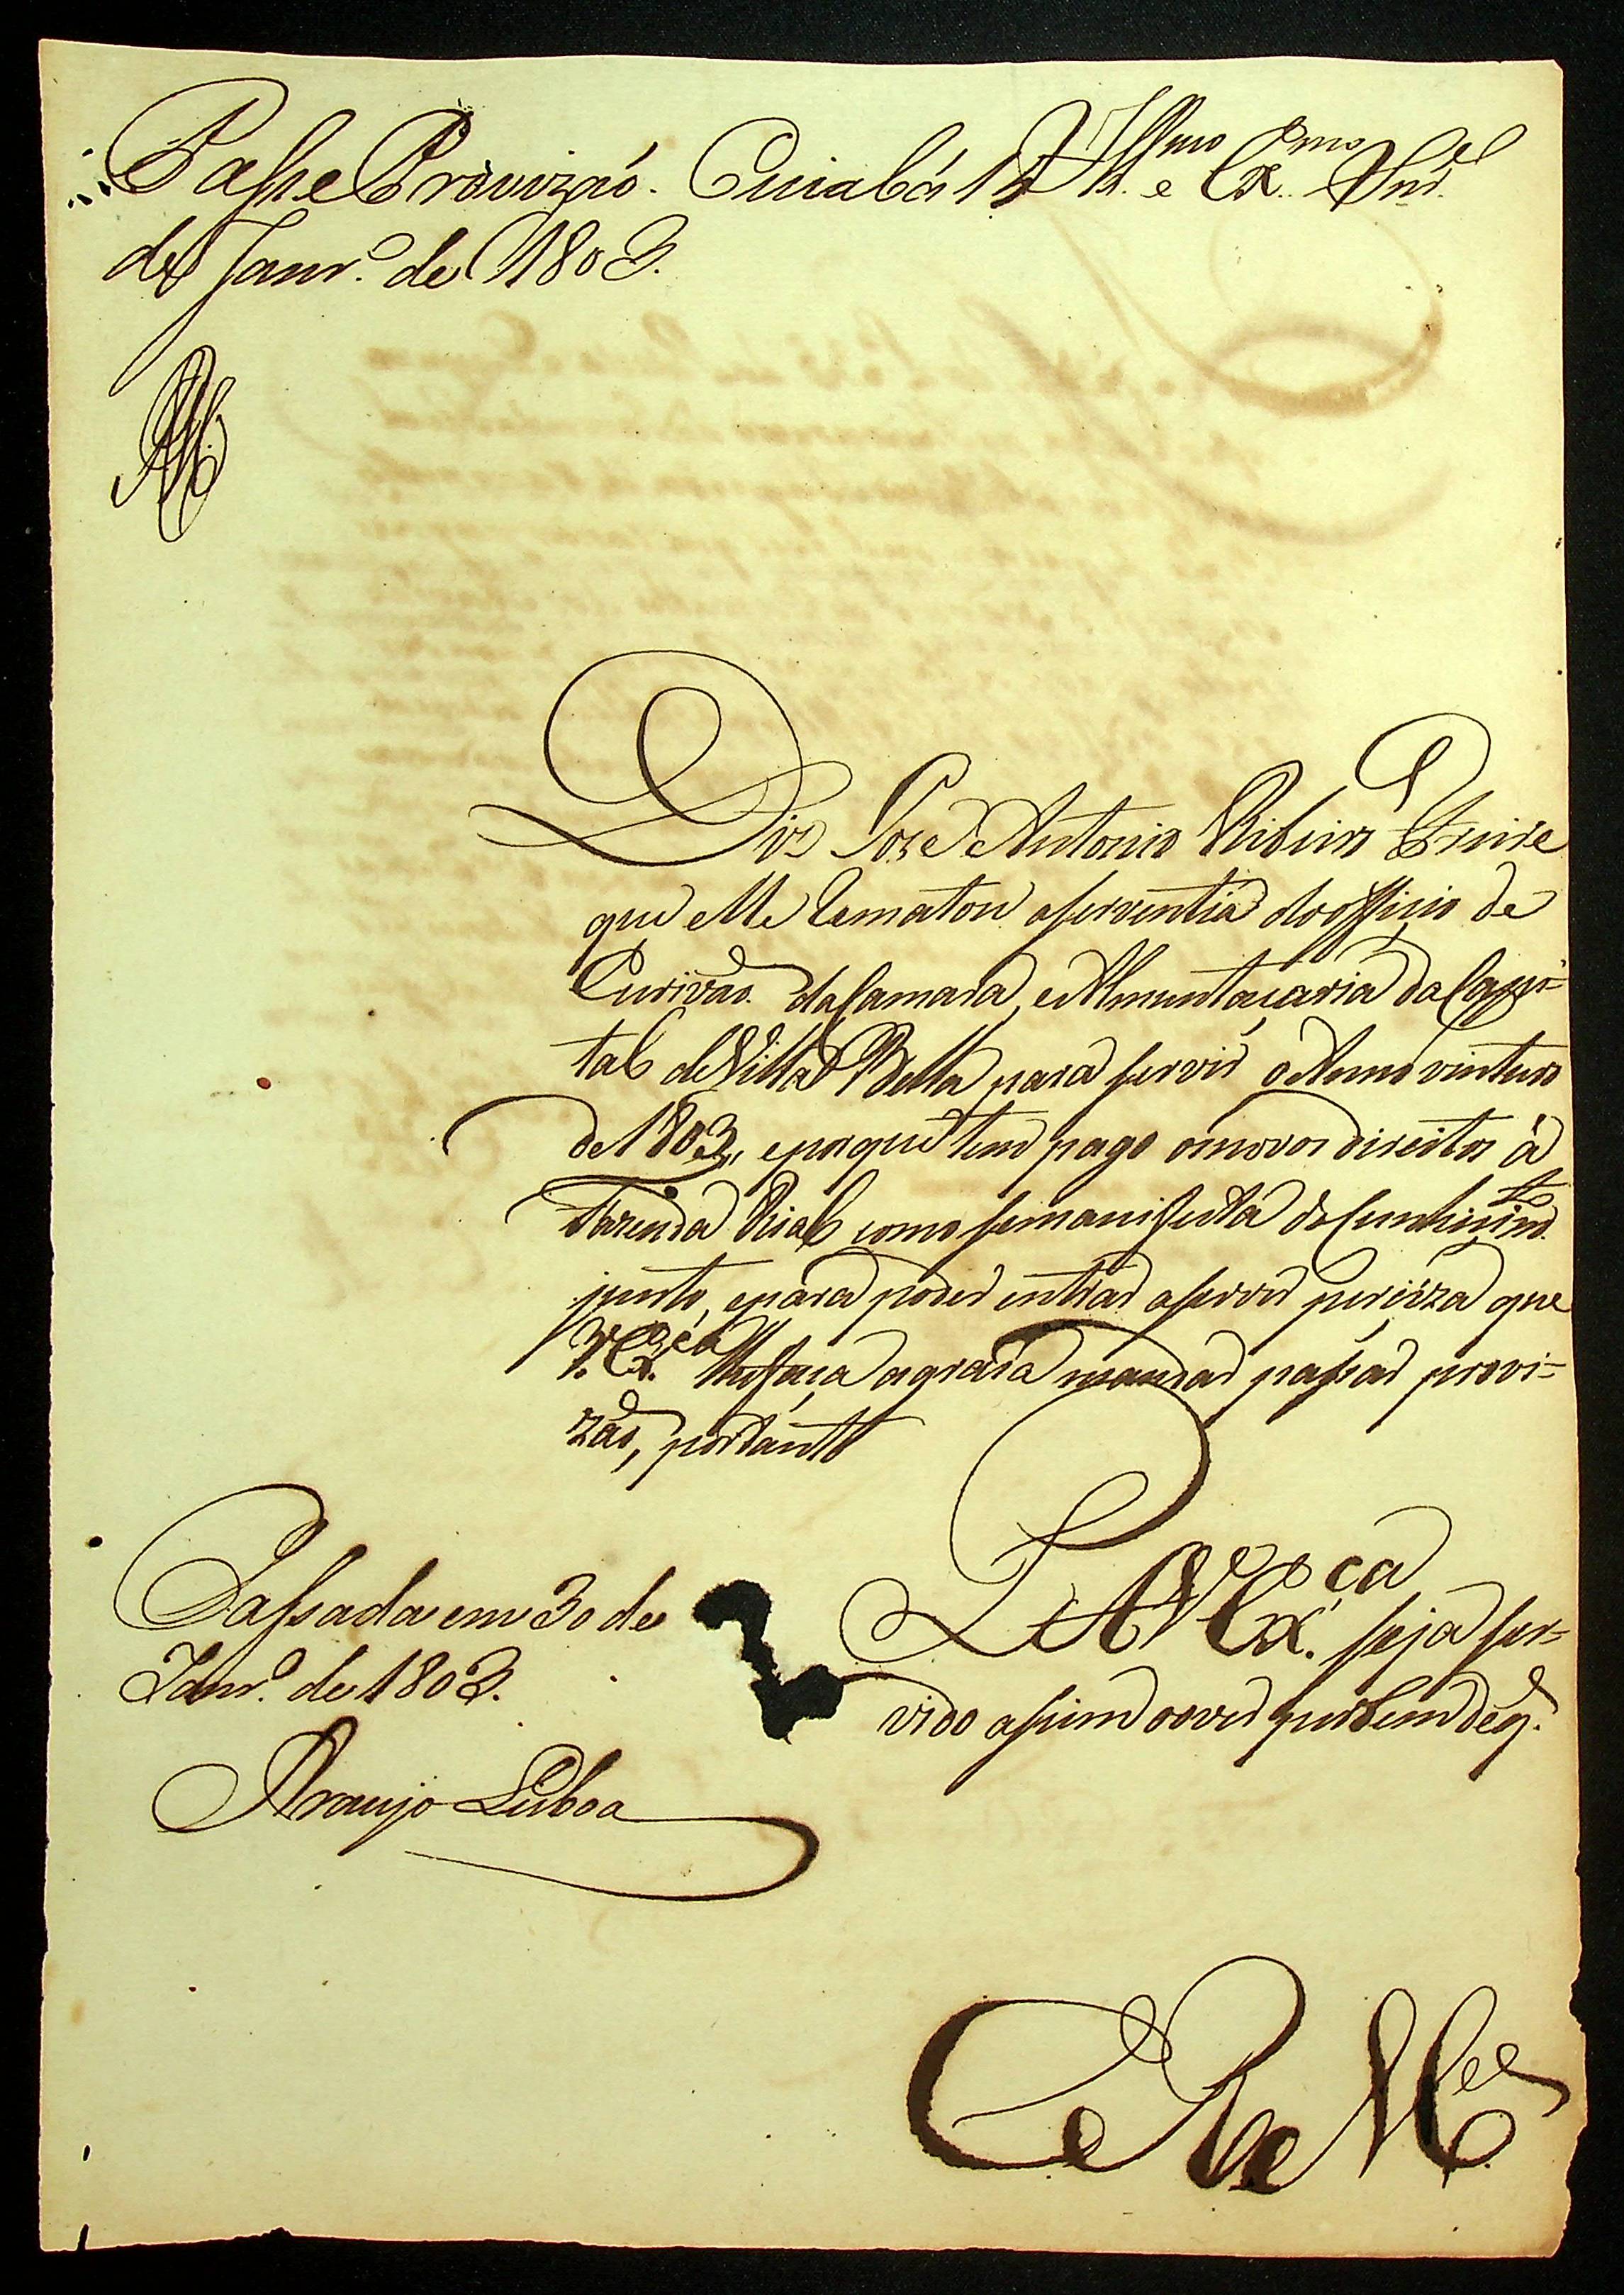 Passe Provizaõ. Cuiabá 17
de Janr.º de 1803.
Ill.mo e Ex.mo Snr.
Diz Jose Antonio Ribeiro Freire
que elle rematou a serventia do officio de
Escrivaõ da Camara, e Almuntaçaria da Capi=
tal de Villa Bella para servir o Anno vinturo
de 1803,, e porque tem pago os novos direitos á
Fazenda Rial como se manifesta do Cunhicim.to
junto, e para poder entrar a servir pericizza que
V. Ex.ca lhe faça a graça mandar passar provi=
zaõ, portanto
P. A V Ex.ca seja ser=
vido assim o aver por bem de q.
E R Me
Passada em 30 de
Janr.º de 1803.
Araujo Lisboa